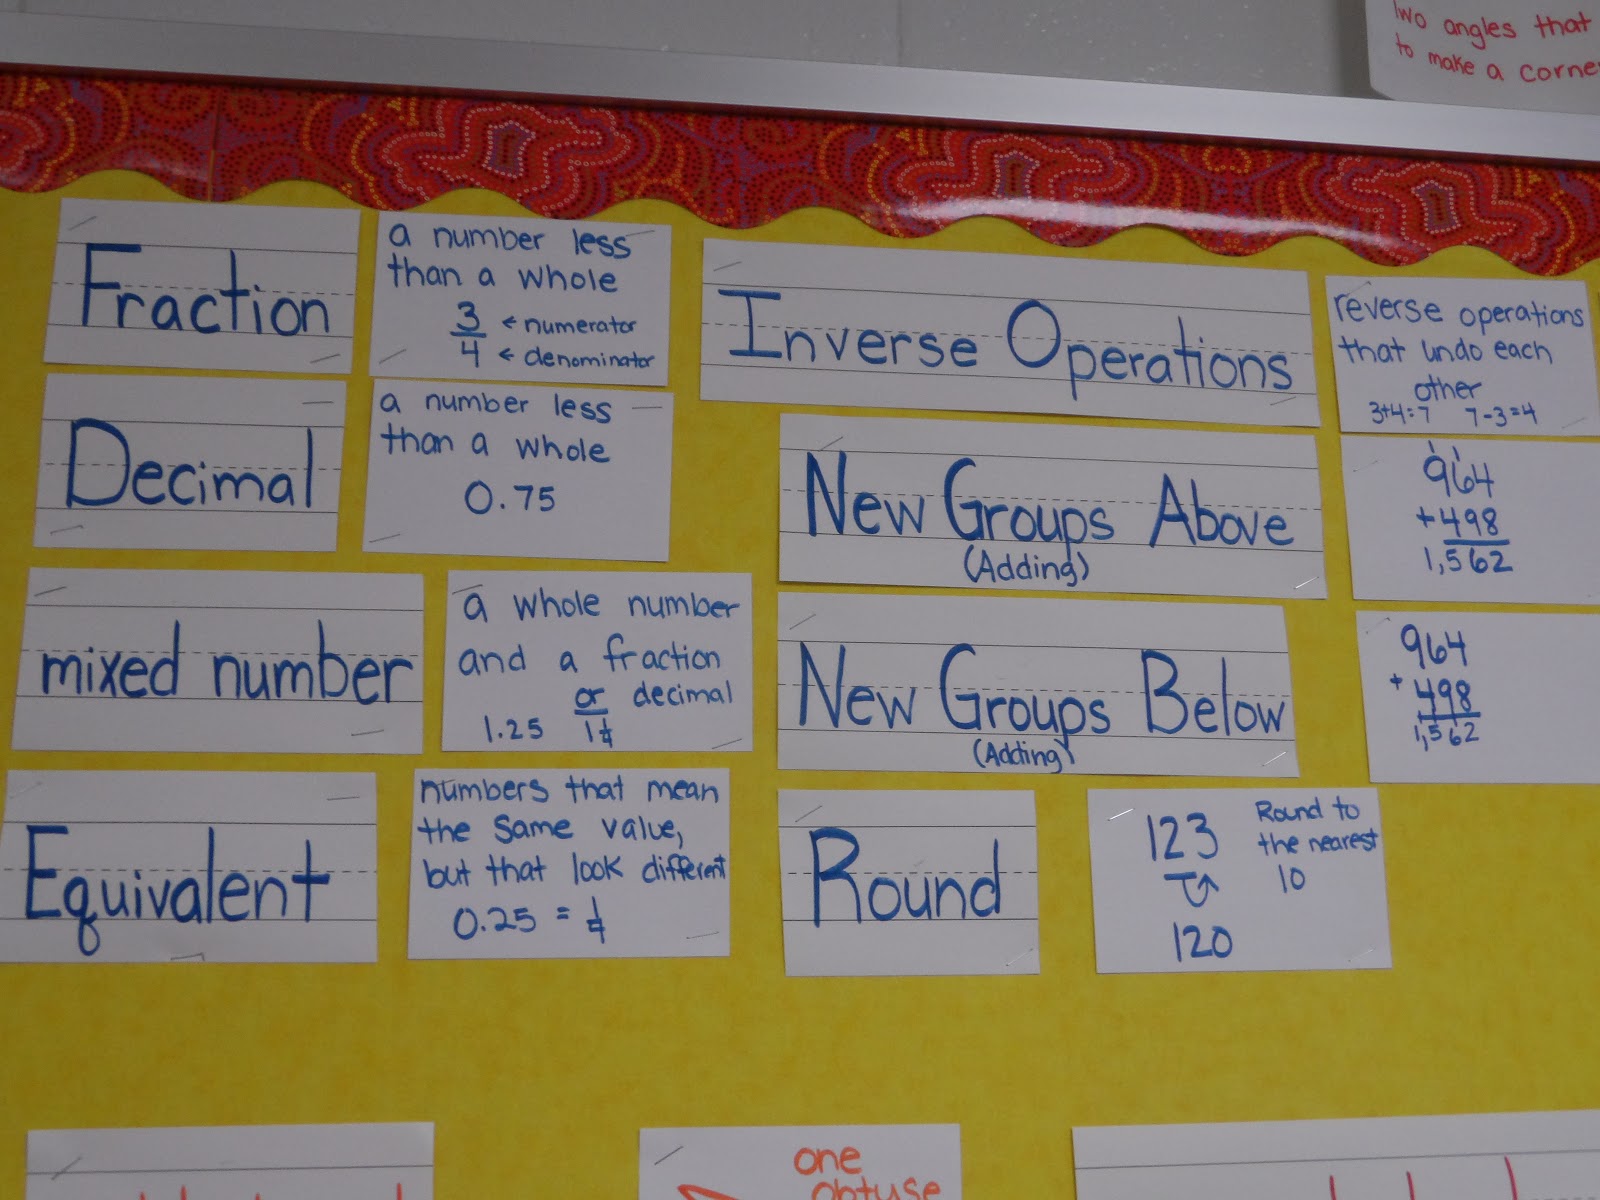 Two angles that
to make a corne
Fraction
a number less
than a whole
3 ← numerator
4 ← denominator
Decimal
a number less
than a whole
0.75
mixed number
a whole number
and a fraction
or decimal
1.25 1 1/4
Equivalent
numbers that mean
the same value,
but that look different
0.25 = 1/4
Inverse Operations
reverse operations
that undo each
other
3+4=7 7-3=4
New Groups Above
(Adding)
1 1
964
+498
1,562
New Groups Below
(Adding)
964
+ 498
1,562
Round
123
120
Round to
the nearest
10
one
obtuse